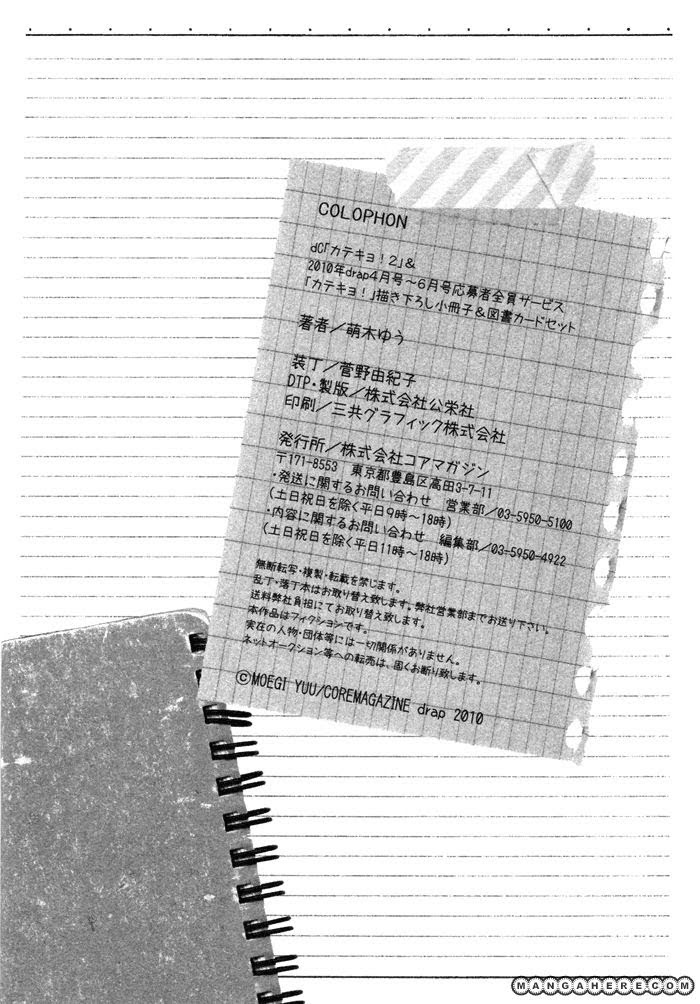 COLOPHON
dC「カテキョ！2」＆
2010年drap4月号～6月号応募者全員サービス
「カテキョ！」描き下ろし小冊子＆図書カードセット
著者／萌木ゆう
装丁／菅野由紀子
DTP・製版／株式会社公栄社
印刷／三共グラフィック株式会社
発行所／株式会社コアマガジン
〒171-8553 東京都豊島区高田3-7-11
・発送に関するお問い合わせ 営業部／03-5950-5100
（土日祝日を除く平日9時～18時）
・内容に関するお問い合わせ 編集部／03-5950-4922
（土日祝日を除く平日11時～18時）
無断転写・複製・転載を禁じます。
乱丁・落丁本はお取り替え致します。弊社営業部までお送り下さい。
送料弊社負担にてお取り替え致します。
本作品はフィクションです。
実在の人物・団体等には一切関係がありません。
ネットオークション等への転売は、固くお断り致します。
©MOEGI YUU/COREMAGAZINE drap 2010
MANGAHERE.COM